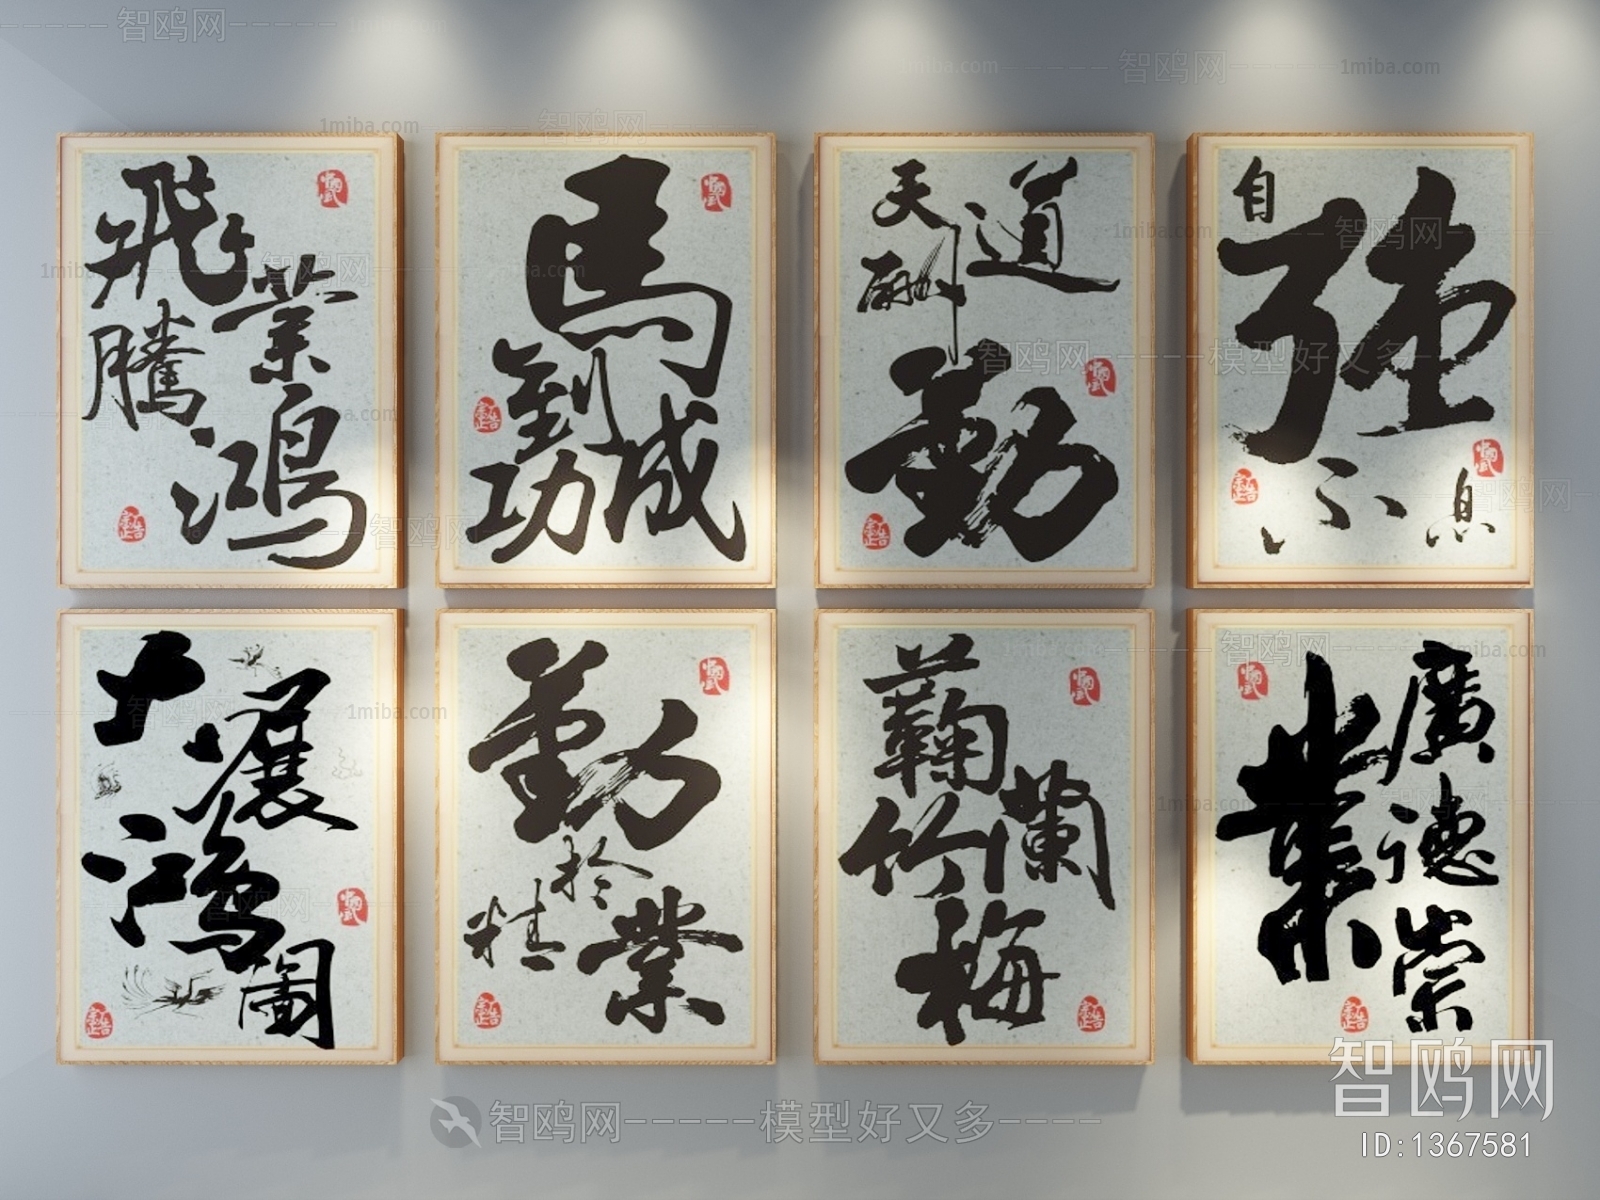 鴻業飛騰
馬到成功
天道酬勤
自強不息
大展鴻圖
業精於勤
梅蘭竹蘜
崇德廣業
智鸥网-----模型好又多----
智鸥网
ID:1367581
1miba.com